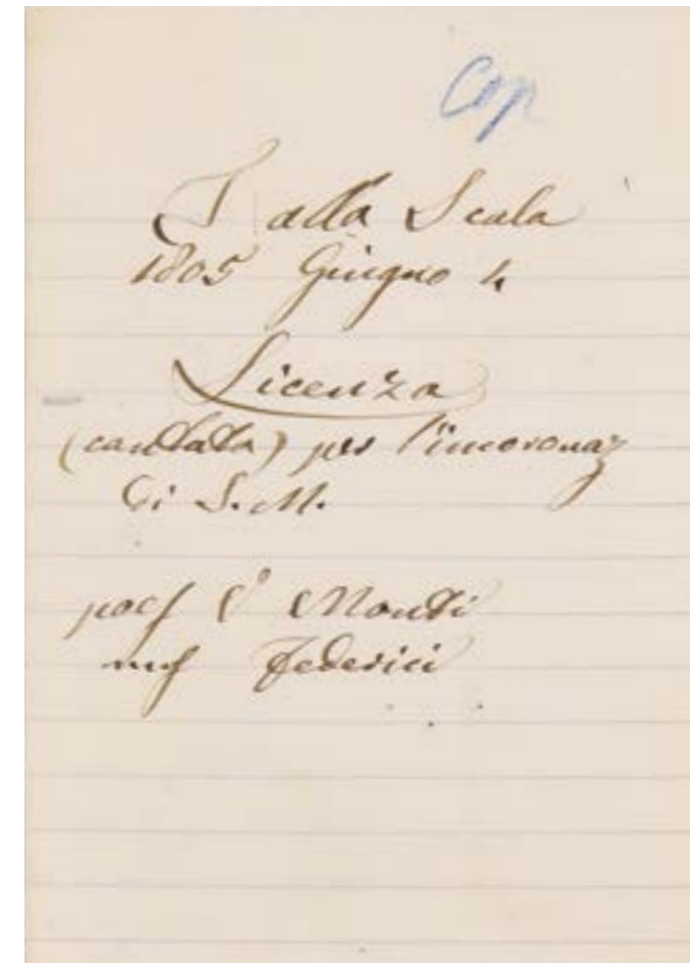 Cop
T alla Scala
1805 Giugno 4
Licenza
(cantata) per l'incoronaz
di S. M.
poes V Monti
mus Federici